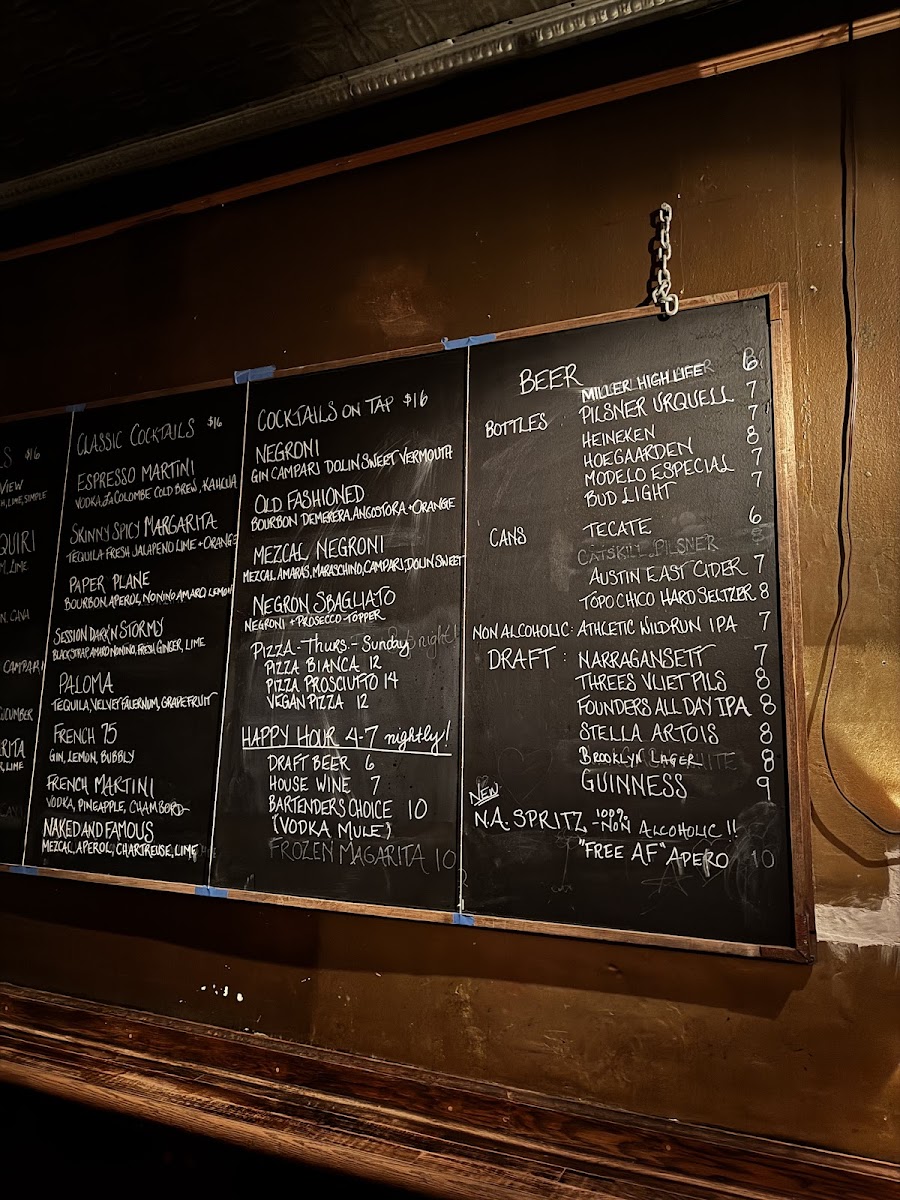 LS $16
VIEW
H, LIME, SIMPLE
QUIRI
LIME
CAMPARI
CUCUMBER
RITA
R, LIME
CLASSIC COCKTAILS $16
ESPRESSO MARTINI
VODKA, LA COLOMBE COLD BREW, KAHLUA
SKINNY SPICY MARGARITA
TEQUILA FRESH JALAPENO LIME + ORANGE
PAPER PLANE
BOURBON, APEROL, NONINO AMARO, LEMON
SESSION DARK'N STORMY
BLACKSTRAP, AMARO NONINO, FRESH GINGER, LIME
PALOMA
TEQUILA, VELVET FALERNUM, GRAPEFRUIT
FRENCH 75
GIN, LEMON, BUBBLY
FRENCH MARTINI
VODKA, PINEAPPLE, CHAMBORD
NAKED AND FAMOUS
MEZCAL, APEROL, CHARTREUSE, LIME
COCKTAILS ON TAP $16
NEGRONI
GIN CAMPARI DOLIN SWEET VERMOUTH
OLD FASHIONED
BOURBON DEMERERA, ANGOSTORA + ORANGE
MEZCAL NEGRONI
MEZCAL AMARAS, MARASCHINO, CAMPARI, DOLIN SWEET
NEGRON SBAGLIATO
NEGRONI + PROSECCO TOPPER
PIZZA - Thurs. - Sunday night!
PIZZA BIANCA 12
PIZZA PROSCIUTTO 14
VEGAN PIZZA 12
HAPPY HOUR 4-7 nightly!
DRAFT BEER 6
HOUSE WINE 7
BARTENDERS CHOICE 10
(VODKA MULE)
FROZEN MAGARITA 10
BEER MILLER HIGH LIFE 6
BOTTLES PILSNER URQUELL 7
HEINEKEN 7
HOEGAARDEN 8
MODELO ESPECIAL 7
BUD LIGHT 7
CANS TECATE 6
CATSKILL PILSNER 8
AUSTIN EAST CIDER 7
TOPO CHICO HARD SELTZER 8
NON ALCOHOLIC: ATHLETIC WILD RUN IPA 7
DRAFT: NARRAGANSETT 7
THREES VLIET PILS 8
FOUNDERS ALL DAY IPA 8
STELLA ARTOIS 8
BROOKLYN LAGER 8
GUINNESS 9
NEW
N.A. SPRITZ - 100% NON ALCOHOLIC!!
"FREE AF" APERO 10